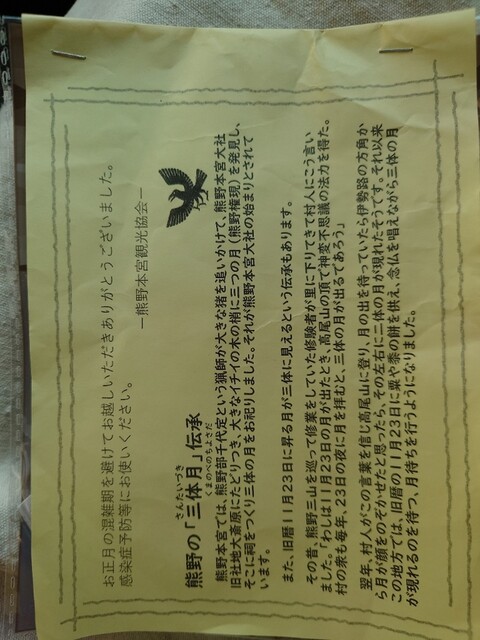 お正月の混雑期を避けてお越しいただきありがとうございました。
感染症予防等にお使いください。
－熊野本宮観光協会－
さんたいづき
熊野の「三体月」伝承
くまのべのちよさだ
熊野本宮では、熊野部千代定という猟師が大きな猪を追いかけて、熊野本宮大社
旧社地大斎原にたどりつき、大きなイチイの木の梢に三つの月(熊野権現)を発見し、
そこに祠をつくり三体の月をお祀りしました。それが熊野本宮大社の始まりとされて
います。
また、旧暦11月23日に昇る月が三体に見えるという伝承もあります。
その昔、熊野三山を巡って修業をしていた修験者が里に下りてきて村人にこう言い
ました。「わしは11月23日の月が出たとき、高尾山の頂で神変不思議の法力を得た。
村の衆も毎年、23日の夜に月を拝むと、三体の月が出るであろう」
翌年、村人がこの言葉を信じ高尾山に登り、月の出を待っていたら伊勢路の方角か
ら月が顔をのぞかせたと思ったら、その左右に二体の月が現れたそうです。それ以来
この地方では、旧暦の11月23日に粟や黍の餅を供え、念仏を唱えながら三体の月
が現れるのを待つ、月待ちを行うようになりました。